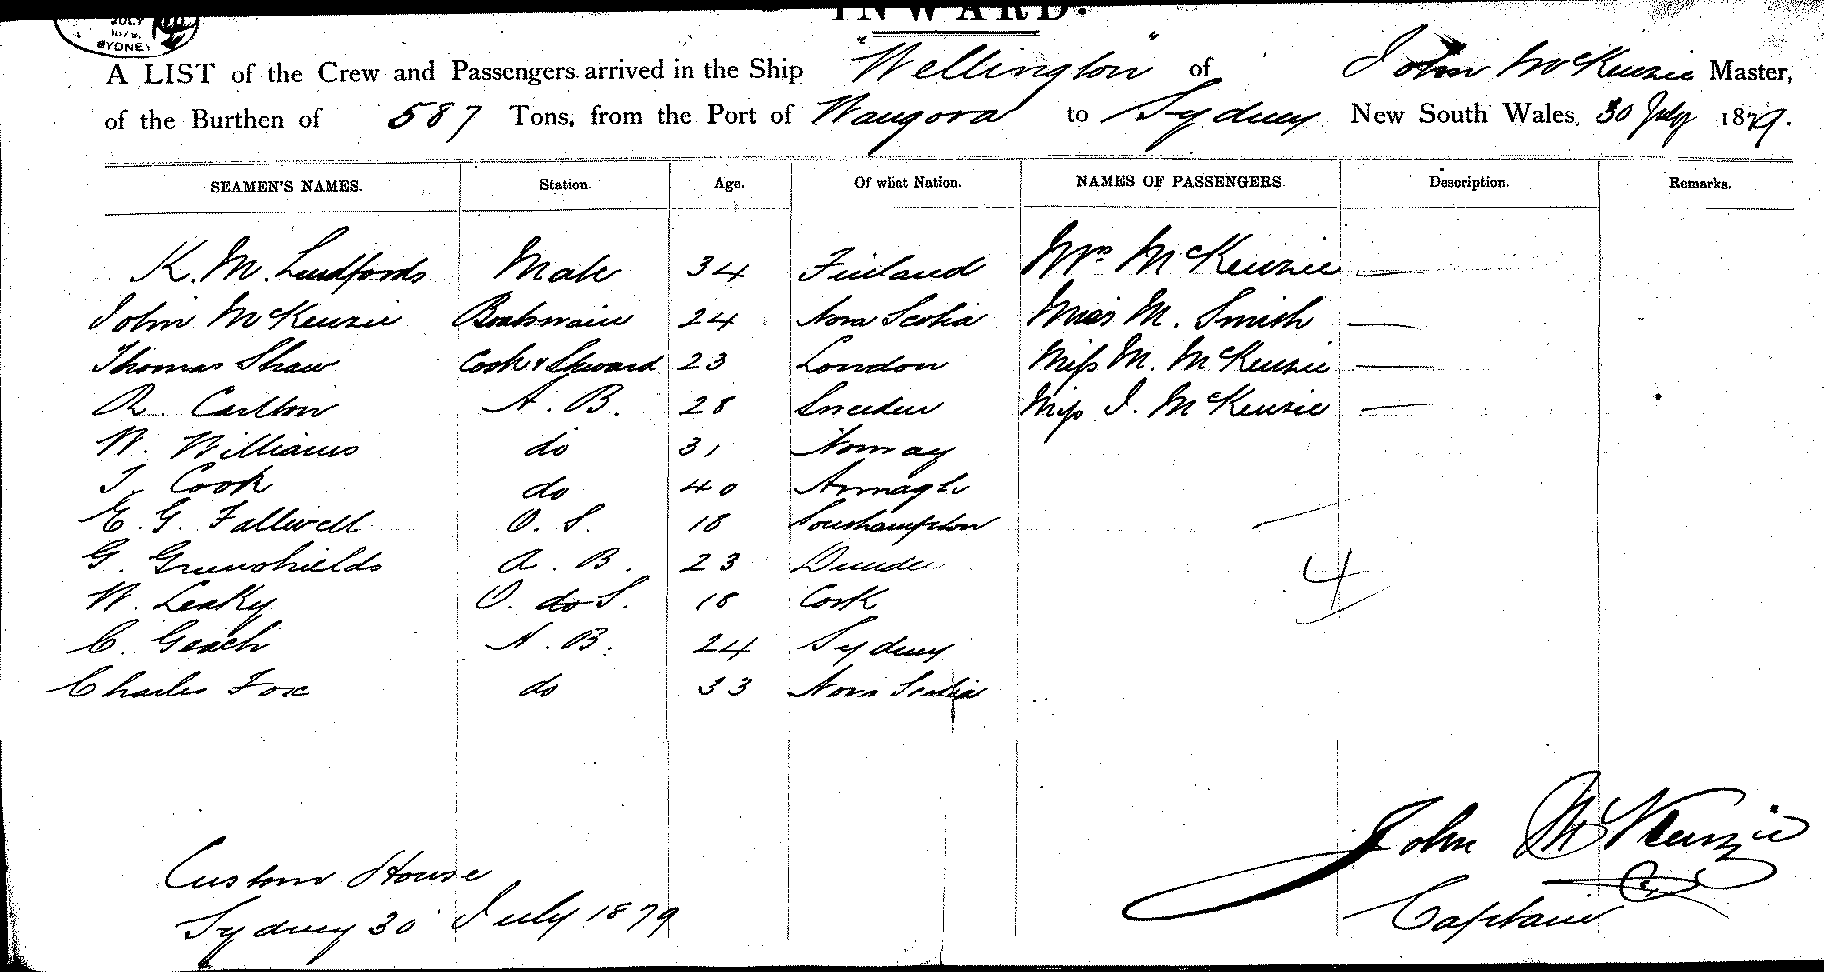 JULY
1879
SYDNEY
INWARD.
A LIST of the Crew and Passengers arrived in the Ship "Wellington" of John McKenzie Master,
of the Burthen of 587 Tons, from the Port of to Sydney New South Wales, 30 July 1879.
SEAMEN'S NAMES. Station. Age. Of what Nation. NAMES OF PASSENGERS. Description. Remarks.
K. M. Mate 34 Finland Mrs McKenzie —
John McKenzie Boatswain 24 Nova Scotia Miss M. Smith —
Thomas Shaw Cook & Steward 23 London Miss M. McKenzie —
R. Carlton A. B. 28 Sweden Miss J. McKenzie —
W. Williams do 31 Norway
J. Cook do 40 Armagh
E. G. Falliwell O. S. 18 Southampton
G. Greenshields A. B. 23 Dundee
W. Leaky O. do S. 18 Cork
C. Geach A. B. 24 Sydney
Charles Fox do 33 Nova Scotia
4
John McKenzie
Captain
Custom House
Sydney 30 July 1879